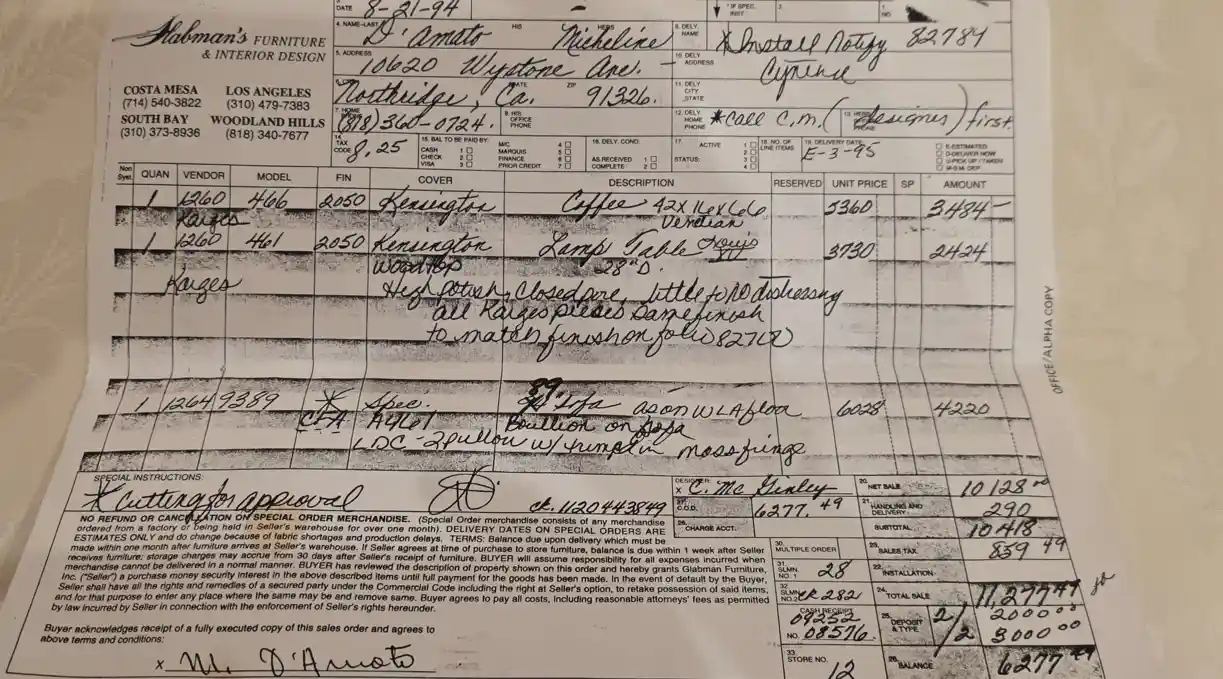 DATE 8-21-94 - * IF SPEC. INST 2. 1. NO
Glabman's FURNITURE
& INTERIOR DESIGN
COSTA MESA LOS ANGELES
(714) 540-3822 (310) 479-7383
SOUTH BAY WOODLAND HILLS
(310) 373-8936 (818) 340-7677
4. NAME-LAST D'Amato HIS HERS Micheline 9. DELY. NAME *Install Notify 82784
5. ADDRESS 10620 Wystone Ave. - 10. DELY ADDRESS
6. CITY Northridge, STATE Ca. ZIP 91326. 11. DELY CITY STATE
7. HOME PHONE (818) 360-0724. 8. HIS OFFICE PHONE 12. DELY HOME PHONE *call C.M. (designer) first.
14. TAX CODE 8.25 15. BAL TO BE PAID BY: CASH 1 CHECK 2 VISA 3 M/C 4 MARQUIS 5 FINANCE 6 PRIOR CREDIT 7 16. DELY. COND: AS RECEIVED 1 COMPLETE 2 17. ACTIVE STATUS: 1 2 3 4 18. NO. OF LINE ITEMS 19. DELIVERY DATE E-3-95 E-ESTIMATED D-DELIVER NOW
Non Syst. QUAN VENDOR MODEL FIN COVER DESCRIPTION RESERVED UNIT PRICE SP AMOUNT
1 1260 466 2050 Kensington Coffee 42 X 16 X 66 5360 3484-
Karges
1 1260 461 2050 Kensington Lamp Table Louis XV 3730 2424
Wood top 28" D.
Karges High polish, Closed pore, little to no distressing
all Karges pieces Same finish
to match finish on folio 82718
89
1 1264 9389 * Spec. Sofa as on WLA floor 6028 4220
Bullion on sofa
LDC - 2 pillow w/ moss fringe
SPECIAL INSTRUCTIONS:
* Cutting for approval ck. 1120443849
DESIGNER: x C. McGinley
27. C.O.D. 6277.49
28. CHARGE ACCT.
20. NET SALE 10128 00
21. HANDLING AND DELIVERY 290
SUBTOTAL 10418
23. SALES TAX 859 49
22. INSTALLATION
24. TOTAL SALE 11,277 49
25. DEPOSIT & TYPE 2/2 2000 00
3000 00
26. BALANCE 6277 49
30. MULTIPLE ORDER
31. SLMN. NO. 1 28
32. SLMN. NO. 2 CK 282
CASH RECEIPT 09252
NO. 08576
33. STORE NO. 12
NO REFUND OR CANCELLATION ON SPECIAL ORDER MERCHANDISE. (Special Order merchandise consists of any merchandise
ordered from a factory or being held in Seller's warehouse for over one month). DELIVERY DATES ON SPECIAL ORDERS ARE
ESTIMATES ONLY and do change because of fabric shortages and production delays. TERMS: Balance due upon delivery which must be
made within one month after furniture arrives at Seller's warehouse. If Seller agrees at time of purchase to store furniture, balance is due within 1 week after Seller
receives furniture; storage charges may accrue from 30 days after Seller's receipt of furniture. BUYER will assume responsibility for all expenses incurred when
merchandise cannot be delivered in a normal manner. BUYER has reviewed the description of property shown on this order and hereby grants Glabman Furniture,
Inc. ("Seller") a purchase money security interest in the above described items until full payment for the goods has been made. In the event of default by the Buyer,
Seller shall have all the rights and remedies of a secured party under the Commercial Code including the right at Seller's option, to retake possession of said items,
and for that purpose to enter any place where the same may be and remove same. Buyer agrees to pay all costs, including reasonable attorneys' fees as permitted
by law incurred by Seller in connection with the enforcement of Seller's rights hereunder.
Buyer acknowledges receipt of a fully executed copy of this sales order and agrees to
above terms and conditions:
x M. D'Amato
OFFICE/ALPHA COPY